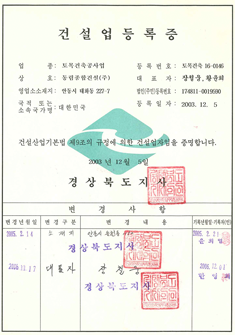 건설업등록증
업 종: 토목건축공사업
등 록 번 호: 토목건축 16-0146
상 호: 동림종합건설(주)
대 표 자:
영업소소재지: 안동시 태화동 227-7
법인(주민)등록번호: 174811-0019590
국적 또는 소속국가명: 대한민국
등 록 일 자: 2003. 12. 5
건설산업기본법 제9조의 규정에 의한 건설업자임을 증명합니다.
2003 년 12 월 5 일
경 상 북 도 지 사
변 경 사 항
변 경 년 월 일
변 경 구 분
변 경 내 용
2005. 2. 14
소 재 지
2005. 2. 21
경상북도지사
대 표 자
경상북도지사